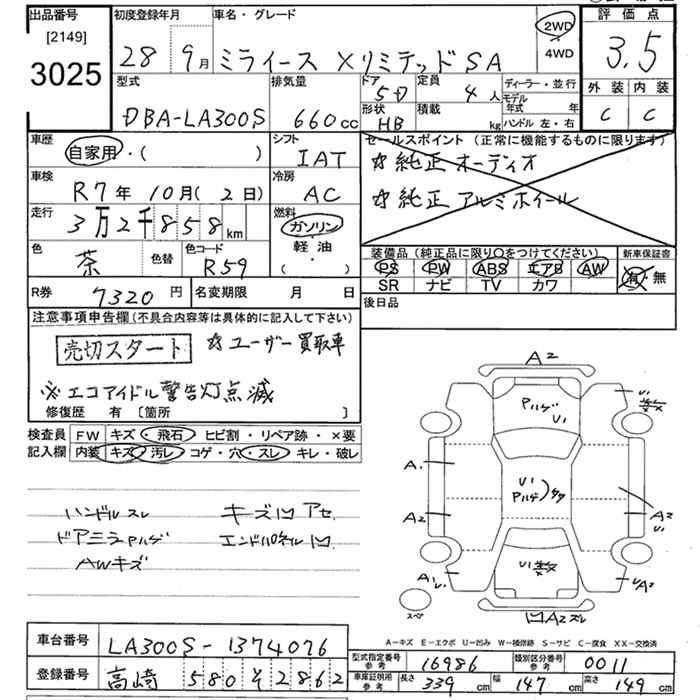 出品番号 初度登録年月 車名・グレード 評価点
[2149]
3025
28 9月 ミライース Xリミテッド SA 2WD
・
4WD
3.5
型式 排気量 ドア 定員 ディーラー・並行 外装 内装
DBA-LA300S 660cc 5D 4人 モデル年式 年 C C
形状 積載
HB kg ハンドル 左・右
車歴 シフト セールスポイント(正常に機能するものに限ります)
自家用・( ) IAT ☆純正オーディオ
車検 冷房
R7年10月(2日) AC ☆純正アルミホイール
走行 燃料
3万2千858km ガソリン・
軽油
( ・ )
色 色替 色コード 装備品(純正品に限り○をつけてください) 新車保証書
茶 R59 PS PW ABS エアB AW 有・無
SR ナビ TV カワ
R券 7320円 名変期限 月 日 後日品
注意事項申告欄(不具合内容等は具体的に記入して下さい)
売切スタート ☆ユーザー買取車
※エコアイドル警告灯点滅
修復歴 有 〔箇所 〕
検査員 FW キズ・飛石・ヒビ割・リペア跡・×要
記入欄 内装 キズ・汚レ・コゲ・穴・スレ・キレ・破レ
ハンドルスレ キズ凹アセ
ドアミラーハゲ エンドパネル凹
AWキズ
A2
U1
A1
A2
A2
U1
A2
スペ
凹A2スレ
A-キズ E-エクボ U-凹み W-補修跡 S-サビ C-腐食 XX-交換済
車台番号 LA300S-1374076
登録番号 高崎 580 そ 2862
型式指定番号 参考 16986 類別区分番号 参考 0011
車庫証明用 参考 長さ 339cm 幅 147cm 高さ 149cm